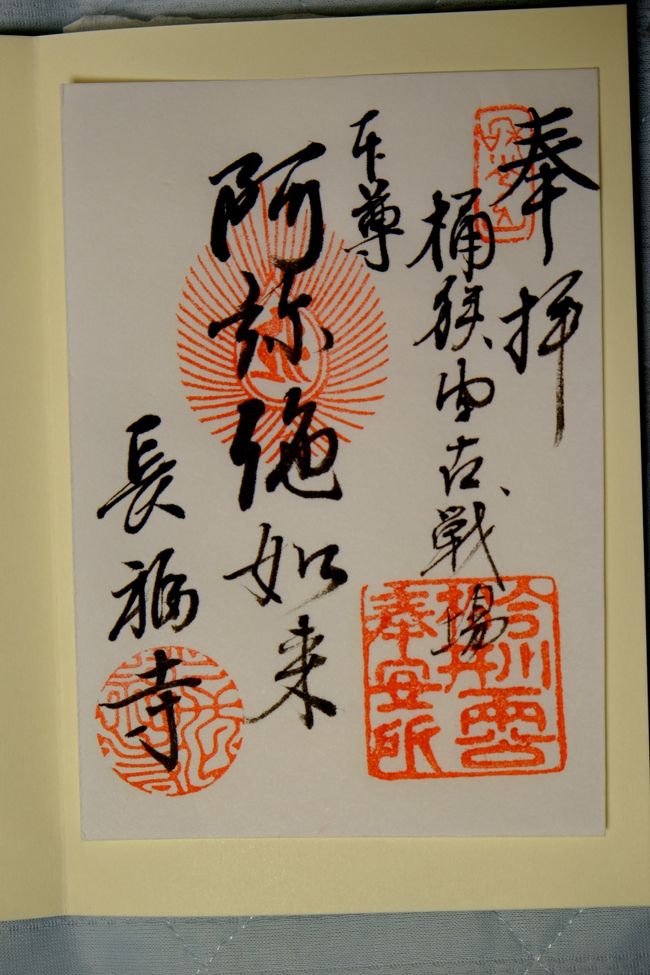 奉拝
桶狭間古戦場
本尊
阿弥陀如来
長福寺
今川
奉安所